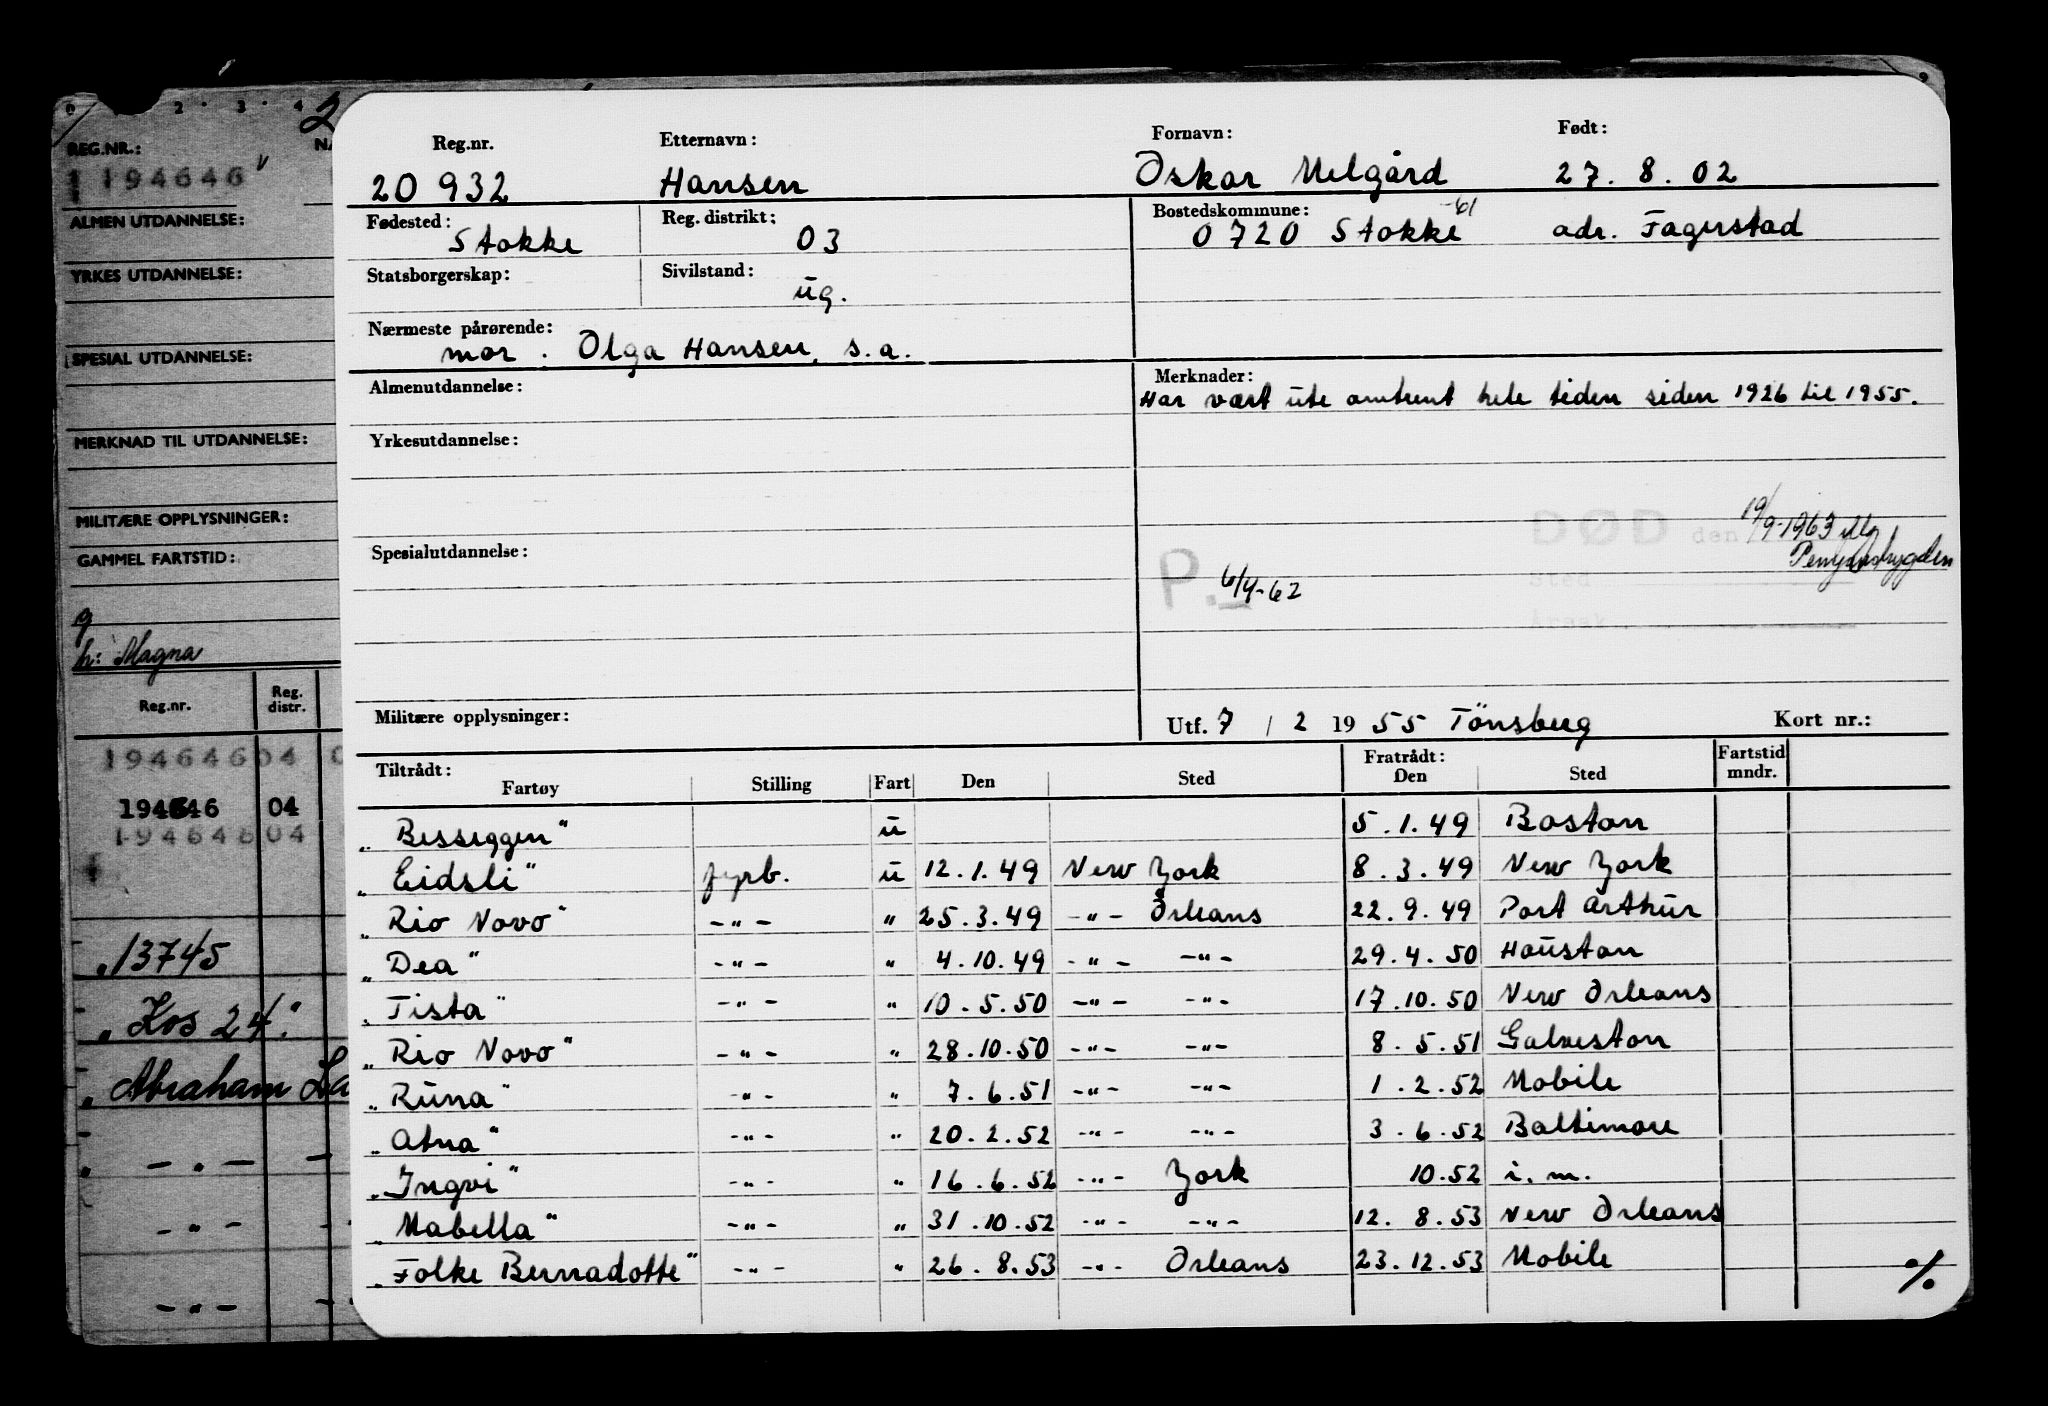 REG.NR.:
194646
ALMEN UTDANNELSE:
YRKES UTDANNELSE:
SPESIAL UTDANNELSE:
MERKNAD TIL UTDANNELSE:
MILITÆRE OPPLYSNINGER:
GAMMEL FARTSTID:
g
h: Magna
Reg.nr. Reg. distr.
194646 04
194646 04
194646 04
"13745
"Kos 24."
"Abraham
Reg.nr. Etternavn: Fornavn: Født:
20 932 Hansen Oskar Melgård 27. 8. 02
Fødested: Stokke Reg. distrikt; 03 Bostedskommune: 0720 Stokke -61 adr. Fagerstad
Statsborgerskap: Sivilstand: ug.
Nærmeste pårørende: mor. Olga Hansen, s.a.
Almenutdannelse: Merknader:
Har vært ute omtrent hele tiden siden 1926 til 1955.
Yrkesutdannelse:
DØD den 19/9-1963
Spesialutdannelse:
sted
P. 6/4-62
Årsak
Militære opplysninger: Utf. 7 / 2 19 55 Tönsberg Kort nr.:
Tiltrådt: Fratrådt: Fartstid
Fartøy Stilling Fart Den Sted Den Sted mndr.
"Besseggen" u 5.1.49 Boston
"Eidsli" fyrb. u 12.1.49 New York 8.3.49 New York
"Rio Novo" -"- " 25.3.49 -"- Orleans 22.9.49 Port Arthur
"Dea" -"- " 4.10.49 -"- -"- 29.4.50 Houston
"Tista" -"- " 10.5.50 -"- -"- 17.10.50 New Orleans
"Rio Novo" -"- " 28.10.50 -"- -"- 8.5.51 Galveston
"Runa" -"- " 7.6.51 -"- -"- 1.2.52 Mobile
"Atna" -"- " 20.2.52 -"- -"- 3.6.52 Baltimore
"Ingvi" -"- " 16.6.52 -"- York 10.52 i.m.
"Mabella" -"- " 31.10.52 -"- -"- 12.8.53 New Orleans
"Folke Bernadotte" -"- " 26.8.53 -"- Orleans 23.12.53 Mobile
%